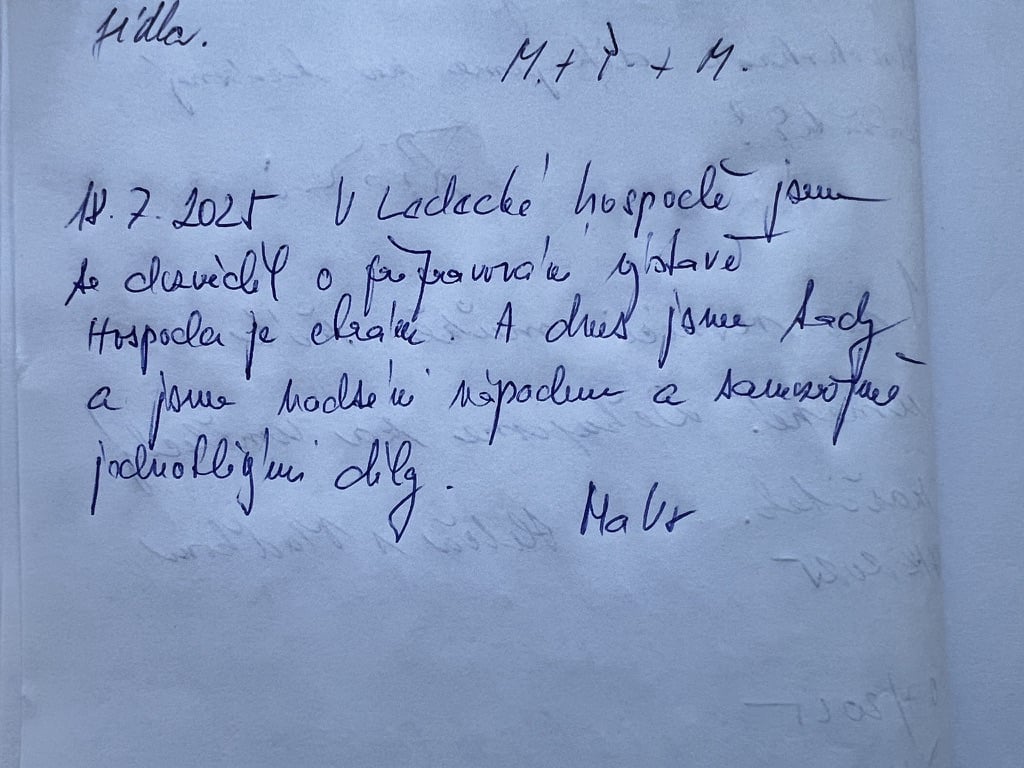 jídla.
M. + Ř + M.
18. 7. 2025 V Ladecké hospodě jsme
se dozvěděl o připravování výstavě
Hospoda je chrám. A dnes jsme tady
a jsme nadšení nápadem a samozřejmě
jednotlivými díly.